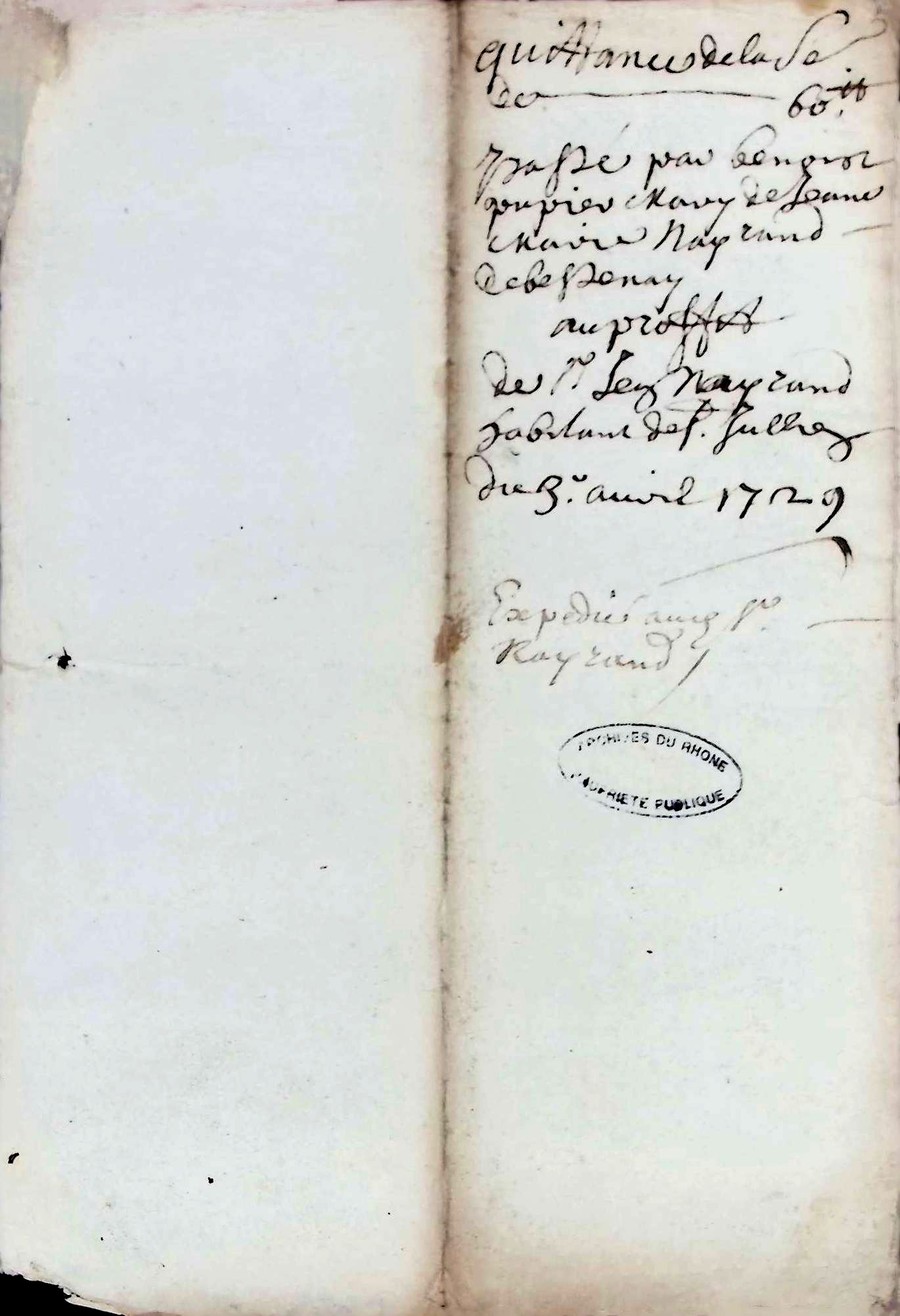 quittance de la Se
de 60.tt
Passé par benoist
pupier Mary de Jeanne
Marie Nayrand
de bessenay
au proffit
de Sr Jean Nayrand
habitant de St. Jullien
du 3e. avril 1729
Expedié aud Sr.
Nayrand
ARCHIVES DU RHONE
PROPRIETE PUBLIQUE